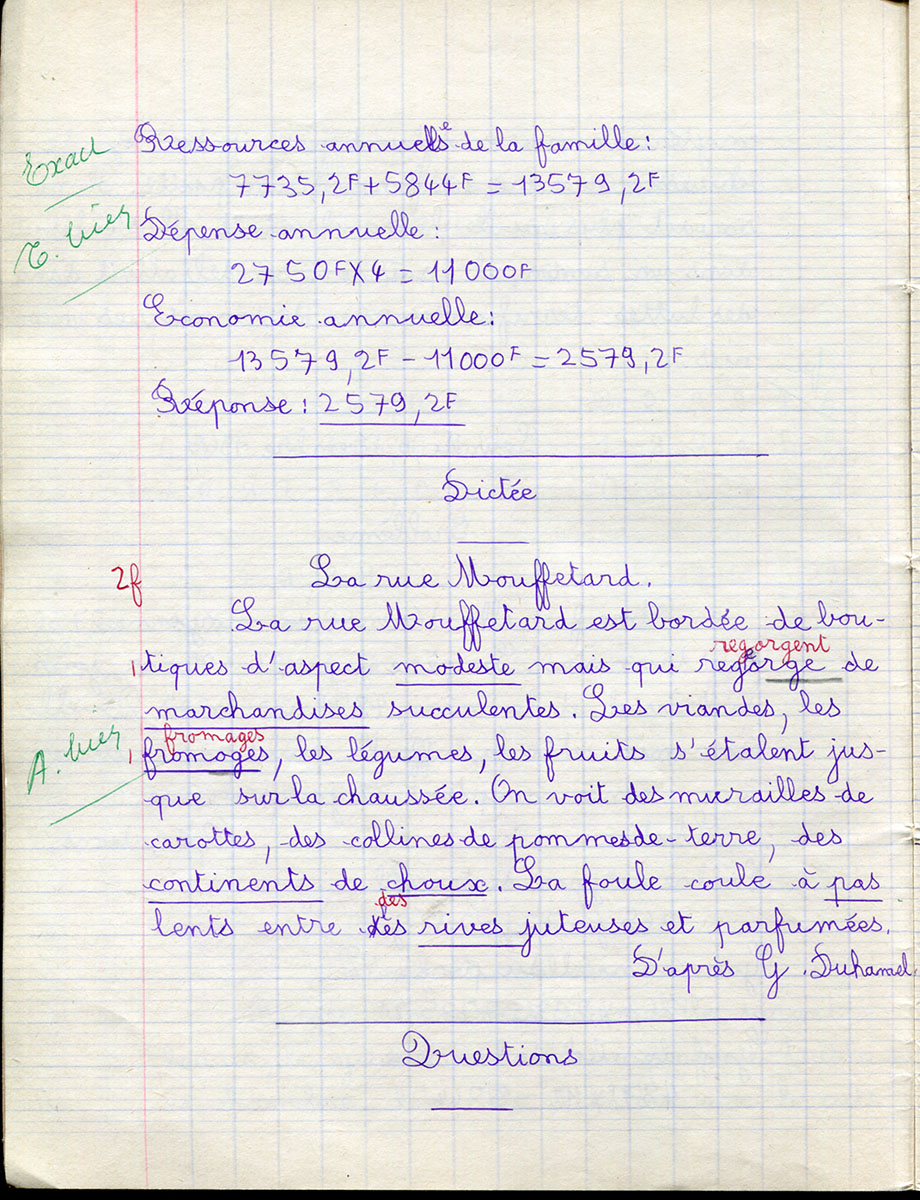 Ressources annuelles de la famille :
Exact
7735,2F + 5844F = 13579,2F
T. bien
Dépense annuelle :
2750F X 4 = 11000F
Economie annuelle :
13579,2F - 11000F = 2579,2F
Réponse : 2579,2F
Dictée
2f
La rue Mouffetard.
La rue Mouffetard est bordée de bou-
regorgent
1 tiques d'aspect modeste mais qui regorge de
marchandises succulentes. Les viandes, les
fromages
A. bien
1 fromoges, les légumes, les fruits s'étalent jus-
que sur la chaussée. On voit des murailles de
carottes, des collines de pommes de-terre, des
continents de choux. La foule coule à pas
des
lents entre des rives juteuses et parfumées.
D'après G. Duhamel.
Questions